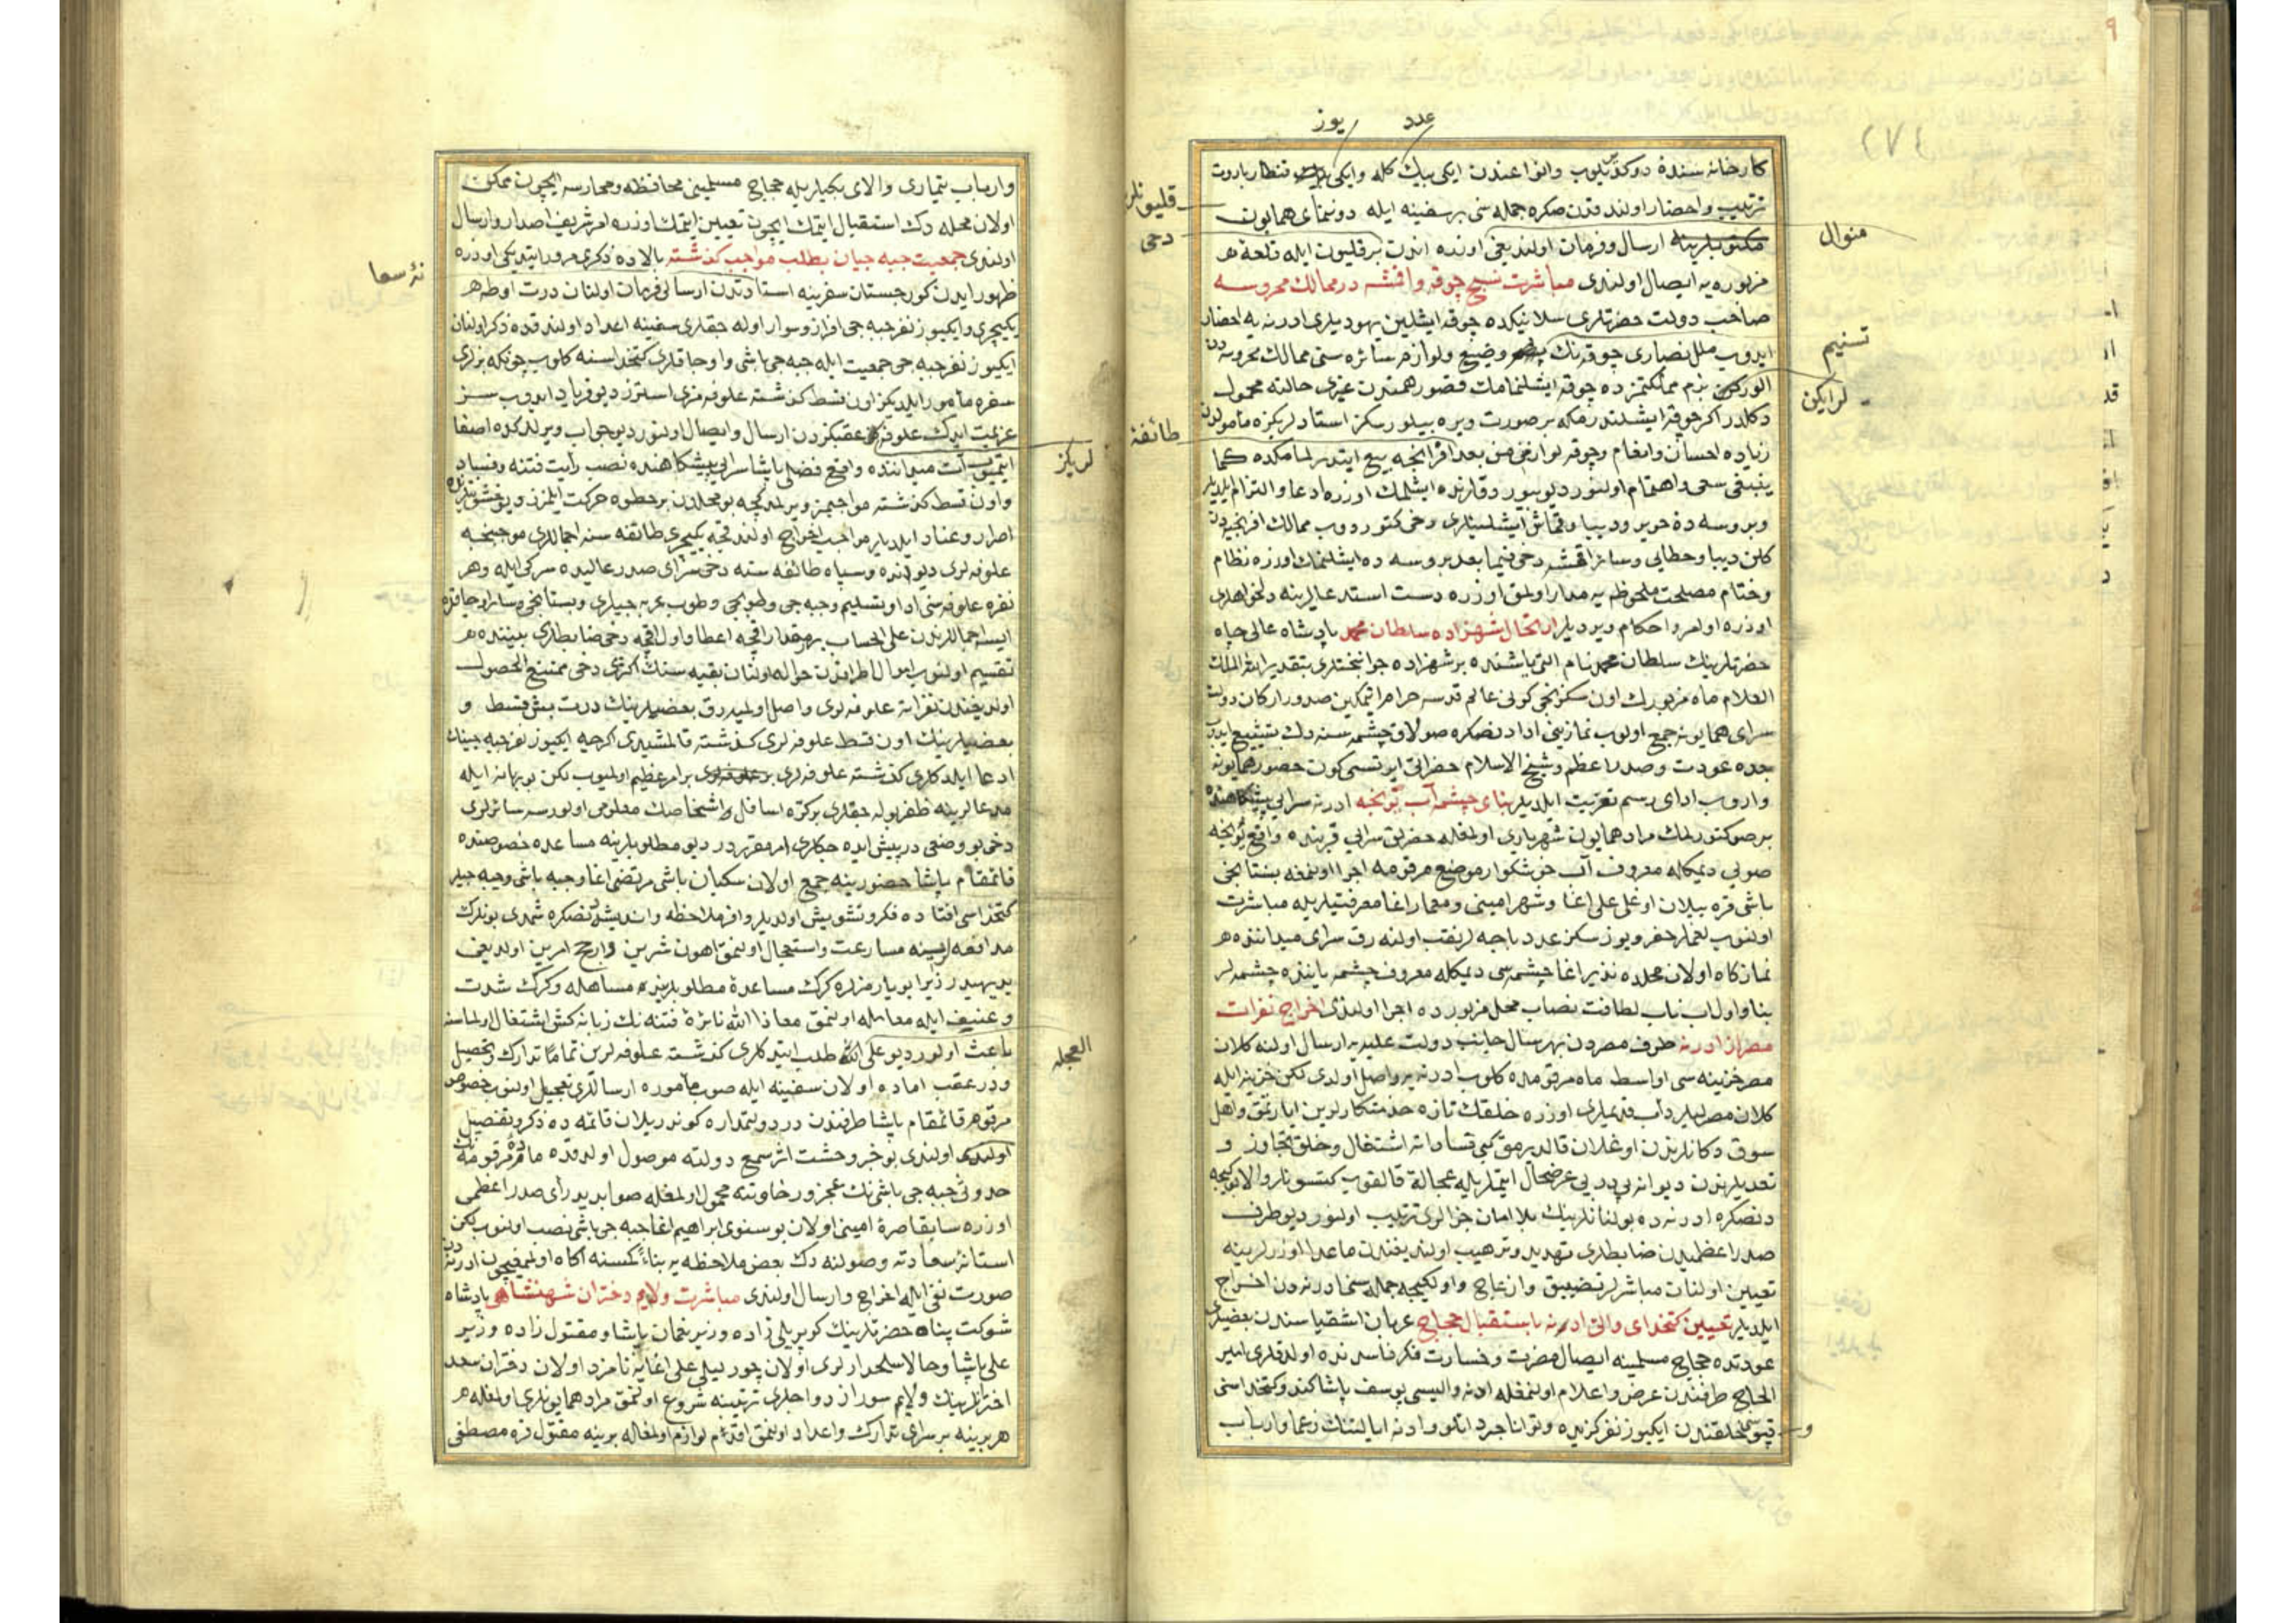 ٩
(٧٤
عدد یوز
كارخانه سنده دوكدیریلوب وانواعندن ایكی بیك كله وایكی قنطار باروت
ترتیب واحضار اولندقدن صكره جمله سی بر سفینه ایله دوننمای همایون
قلیونلر
ارسال وفرمان اولندیغی اوزره اندن بر قلیون ایله قلعهٔ
منوال
دخی
مزبوره یه ایصال اولندی مباشرت نسج چوقه واقمشه در ممالك محروسه
صاحب دولت حضرتلری سلانیكده چوقه ایشلین یهودیلری ادرنه یه احضار
ایدوب ملل نصاری چوقه نك وضیع ولوازم سائره سنی ممالك محروسه دن
تسنیم
الورلركن بزم مملكتمزده چوقه ایشلنمامك قصور همتدن غیری حالته محمول
لرایكن
دكلدر اكر چوقه ایشلندرمكه بر صورت ویره بیلورسكز استادلریكزه مأمولدن
طائفهٔ
زیاده احسان وانعام وچوقه لوازمنی من بعد افرنجه بیع ایتدرلمامكده كما
ینبغی سعی واهتمام اولنور دیو سوردقلرنده ایشلمك اوزره ادعا والتزام ایلدیلر
وبروسه ده حریر ودیبا وقماش ایشلینلری دخی كتوردوب ممالك افرنجیه دن
كلن دیبا وخطایی وسائر اقمشه دخی فیما بعد بروسه ده ایشلنمك اوزره نظام
وختام مصلحت ملحوظه یه مدار اولمق اوزره دست استدعالرینه دلخواهلری
اوزره اوامر واحكام ویردیلر ارتحال شهزاده سلطان محمد پادشاه عالی جاه
حضرتلرینك سلطان محمد نام التی یاشنده بر شهزاده جوانبختلری بتقدیر الله الملك
العلام ماه مزبورك اون سكزنجی كونی عالم قدسه خرام ایتمكین صدور اركان دولت
سرای همایونه جمع اولوب نمازینی ادادنصكره صولاق چشمه سنه دك تشییع ایدوب
جده عودت وصدر اعظم وشیخ الاسلام حضراتی ایرتسی كون حضور همایونه
واروب ادای رسم تعزیت ایلدیلر بنای چشمه آب ادرنه سرایی پیشكاهنده
بر صو كتورلمك مراد همایون شهریاری اولمغله خضرلق سرایی قربنده واقع
صویی دیمكله معروف آب خوشكوار موضع مرقومه اجرا اولنمغه بستانجی
باشی قره ییلان اوغلی علی اغا وشهر امینی ومعمار اغا معرفتیلریله مباشرت
اولنوب لغملر حفر ویوز سكز عدد باجه لر نقب اولنه رق سرای میداننده
نمازكاه اولان محلده نذیر اغا چشمه سی دیمكله معروف چشمه یاننده چشمه لر
بنا واول اب ناب لطافت نصاب محل مزبورده اجرا اولندی اخراج نفرات
مصر از ادرنه طرف مصردن بهر سال جانب دولت علیه یه ارسال اولنه كلان
مصر خزینه سی اواسط ماه مرقومده كلوب ادرنه یه واصل اولدی لكن خزینه ایله
كلان مصرلیلر دأب قدیملری اوزره خلقك تازه خدمتكارلرین ایارتمق واهل
سوق دكانلرندن اوغلان قالدیرمق كبی اشتغال وخلق تجاوز و
تعدیلرندن دیوانه پی درپی عرضحال ایتملریله عجالة قالقوب كیتسونلر والا اوچ كیجه
دنصكره ادرنه ده بولنانلرینك بلا امان جزالری ترتیب اولنور دیو طرف
صدر اعظمیدن ضابطلری تهدید وترهیب اولندیغندن ماعدا اوزرلرینه
تعیین اولنان مباشرلر تضییق وازعاج واولكیجه جمله سنی ادرنه دن اخراج
ایلدیلر تعیین كتخدای والی ادرنه باستقبال حجاج عربان اشقیاسندن بعضیلری
عودتده حجاج مسلمینه ایصال مضرت وخسارت فكر فاسدنده اولدقلری امیر
الحاج طرفندن عرض واعلام اولنمغله ادنه والیسی یوسف پاشا كندو كتخداسنی
و
قپوسی خلقندن ایكیوز نفر كزیده وتوانا جرد اتلو وادنه ایالتنك زعما وارباب
وارباب تیماری والای بكیلریله حجاج مسلمینی محافظه ومحارسه ایچون ممكن
اولان محله دك استقبال ایتمك ایچون تعیین ایتمك اوزره امر شریف اصدار وارسال
اولندی جمعیت جبه جیان بطلب مواجب كذشته بالاده ذكری مرور ایتدیكی اوزره
ظهور ایدن كورجستان سفرینه استانه دن ارسالی فرمان اولنان درت اوطه
نهٔ سعا
یكیچری وایكیوز نفر جبه جی افراز وسوار اوله جقلری سفینه اعداد اولندقده ذكر اولنان
ایكیوز نفر جبه جی جمعیت ایله جبه جی باشی واوجاقلری كتخداسنه كلوب چونكه بزلری
سفره مأمور ایلدیكز اون قسط كذشته علوفه مزی استرز دیو فریاد ایدوب سز
عزیمت ایدك علوفه عقبكزدن ارسال وایصال اولنور دیو جواب ویرلدكده اصغا
لریكز
ایتمیوب ات میداننده واقع فضلی پاشا سرایی پیشكاهنده نصب رأیت فتنه وفساد
واون قسط كذشته مواجبمز ویرلمدكجه بو محلدن بر خطوه حركت ایلمزز
اصرار وعناد ایلدیلر مواجب اخراج اولندقجه یكیچری طائفه سنه اجماللری موجبنجه
علوفه لری دیوانده وسپاه طائفه سنه دخی سرای صدر عالیده سركی ایله وهر
نفره علوفه سنی ادا وتسلیم وجبه جی وطوپجی وطوپ عربه جیلری وبستانجی وسائر اوجاقلره
ایسه اجماللرندن علی الحساب بر مقدار اقچه اعطا واول اقچه دخی ضابطلری بیننده
تقسیم اولنوب اموال اطرافدن حواله اولنان بقیه سنك اكثری دخی ممتنع الحصول
اولدیغندن نفراته علوفه لری واصل اولمیه رق بعضیلرینك درت بش قسط و
بعضیلرینك اون قسط علوفه لری كذشته قالمشیدی اكرچه ایكیوز نفر جبه جینك
ادعا ایلدكلری كذشته علوفه لری بر امر عظیم اولمیوب لكن بو بهانه ایله
مدعالرینه ظفریوله جقلری بر كره اسافل واشخاصك معلومی اولورسه سائرلری
دخی بو وضعی درپیش ایده جكلری امر مقرردر دیو مطلوبلرینه مساعده خصوصنده
قائمقام پاشا حضورینه جمع اولان سكبان باشی مرتضی اغا وجبه جی باشی وجبه جیلر
كتخداسی افتاده فكر وتشویش اولدیلر وافر ملاحظه واندیشه دنصكره شمدی بونلرك
مدافعه لرینه مسارعت واستعجال اولنمق اهون شرین وارجح امرین اولدیغی
بدیهیدر زیرا بو یارمزلره كرك مساعدهٔ مطلوبلرینه مساهله وكرك شدت
وعنیف ایله معامله اولنمق معاذ الله نائرهٔ فتنه نك زبانه كش اشتغال اولماسنه
باعث اولور دیو علی طلب ایتدكلری كذشته علوفه لرین تماما تدارك وتحصیل
العجله
ودر عقب اماده اولان سفینه ایله صوب مأموره ارساللری تعجیل اولنوب خصوص
مرقوم قائمقام پاشا طرفندن در دولتمداره كوندریلان قائمه ده ذكر وتفصیل
اولندی بو خبر وحشت اثر سمع دولته موصول اولدقده مادهٔ مرقومه نك
حدوثی جبه جی باشینك عجز ورخاوتنه محمول اولمغله صوابدید رأی صدر اعظمی
اوزره سابقا صرهٔ امینی اولان بوسنوی ابراهیم اغا جبه جی باشی نصب اولنوب لكن
استانهٔ سعادته وصولنه دك بعض ملاحظه یه بناءً كمسنه اكاه اولمیچون ادرنه دن
صورت نفی ایله اخراج وارسال اولندی مباشرت ولایم دختران شهنشاهی پادشاه
شوكت پناه حضرتلرینك كوپریلی زاده وزیر نعمان پاشا ومقتول زاده وزیر
علی پاشا وحالا سلحدارلری اولان چورلیلی علی اغایه نامزد اولان دختران سعد
اخترلرینك ولایم سور ازدواجلری ترتیبنه شروع اولنمق مراد همایونلری اولمغله
هر برینه بر سرای تدارك واعداد اولنمق اقدم لوازم اولمغله برینه مقتول قره مصطفی